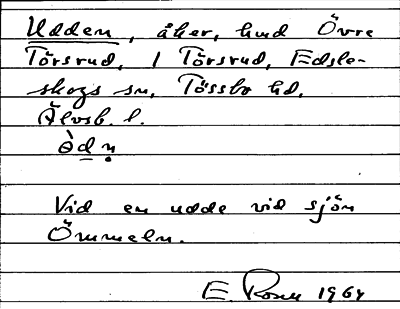 Udden, åker, hmd Övre
Törsrud, 1 Törsrud, Edsle-
skogs sn, Tössbo hd,
Älvsb. l.
òdṇ
Vid en udde vid sjön
Ömmeln.
E. 1964